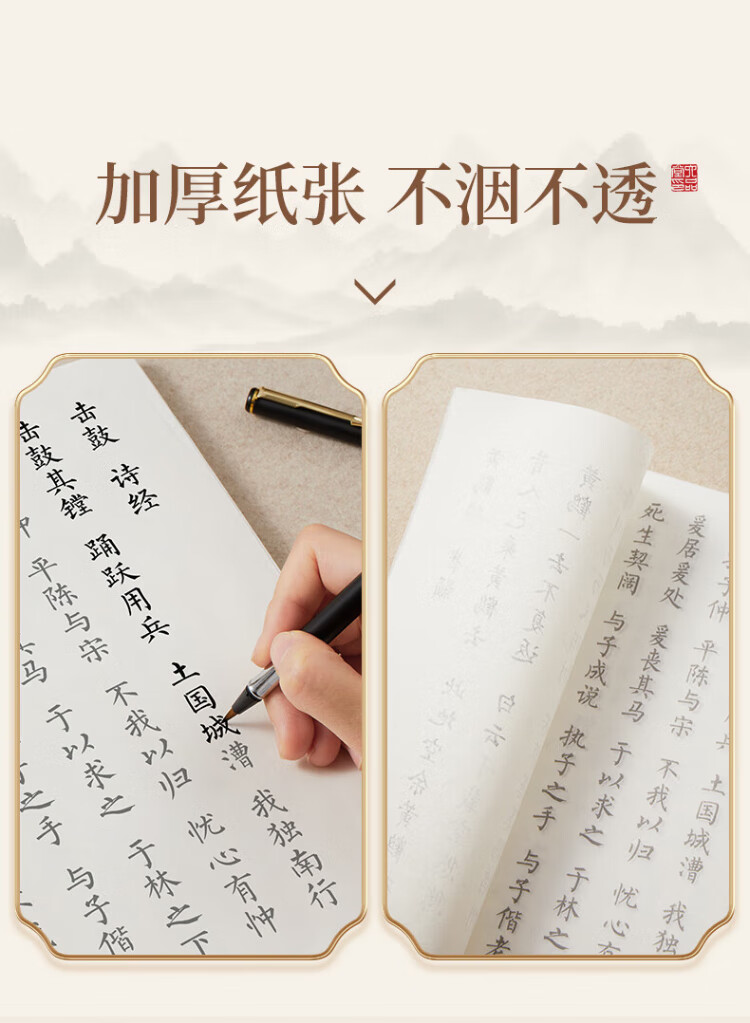 加厚纸张 不洇不透
六品堂印
击鼓 诗经
击鼓其镗 踊跃用兵 土国城漕 我独南行
仲 平陈与宋 不我以归 忧心有忡
马 于以求之 于林之下
之手 与子偕
兵 土国城漕 我独
子仲 平陈与宋 不我以归 忧心有
爰居爰处 爰丧其马 于以求之 于林之
死生契阔 与子成说 执子之手 与子偕老
黄鹤一去不复返 白云
昔人已乘黄鹤去 此地空余黄鹤